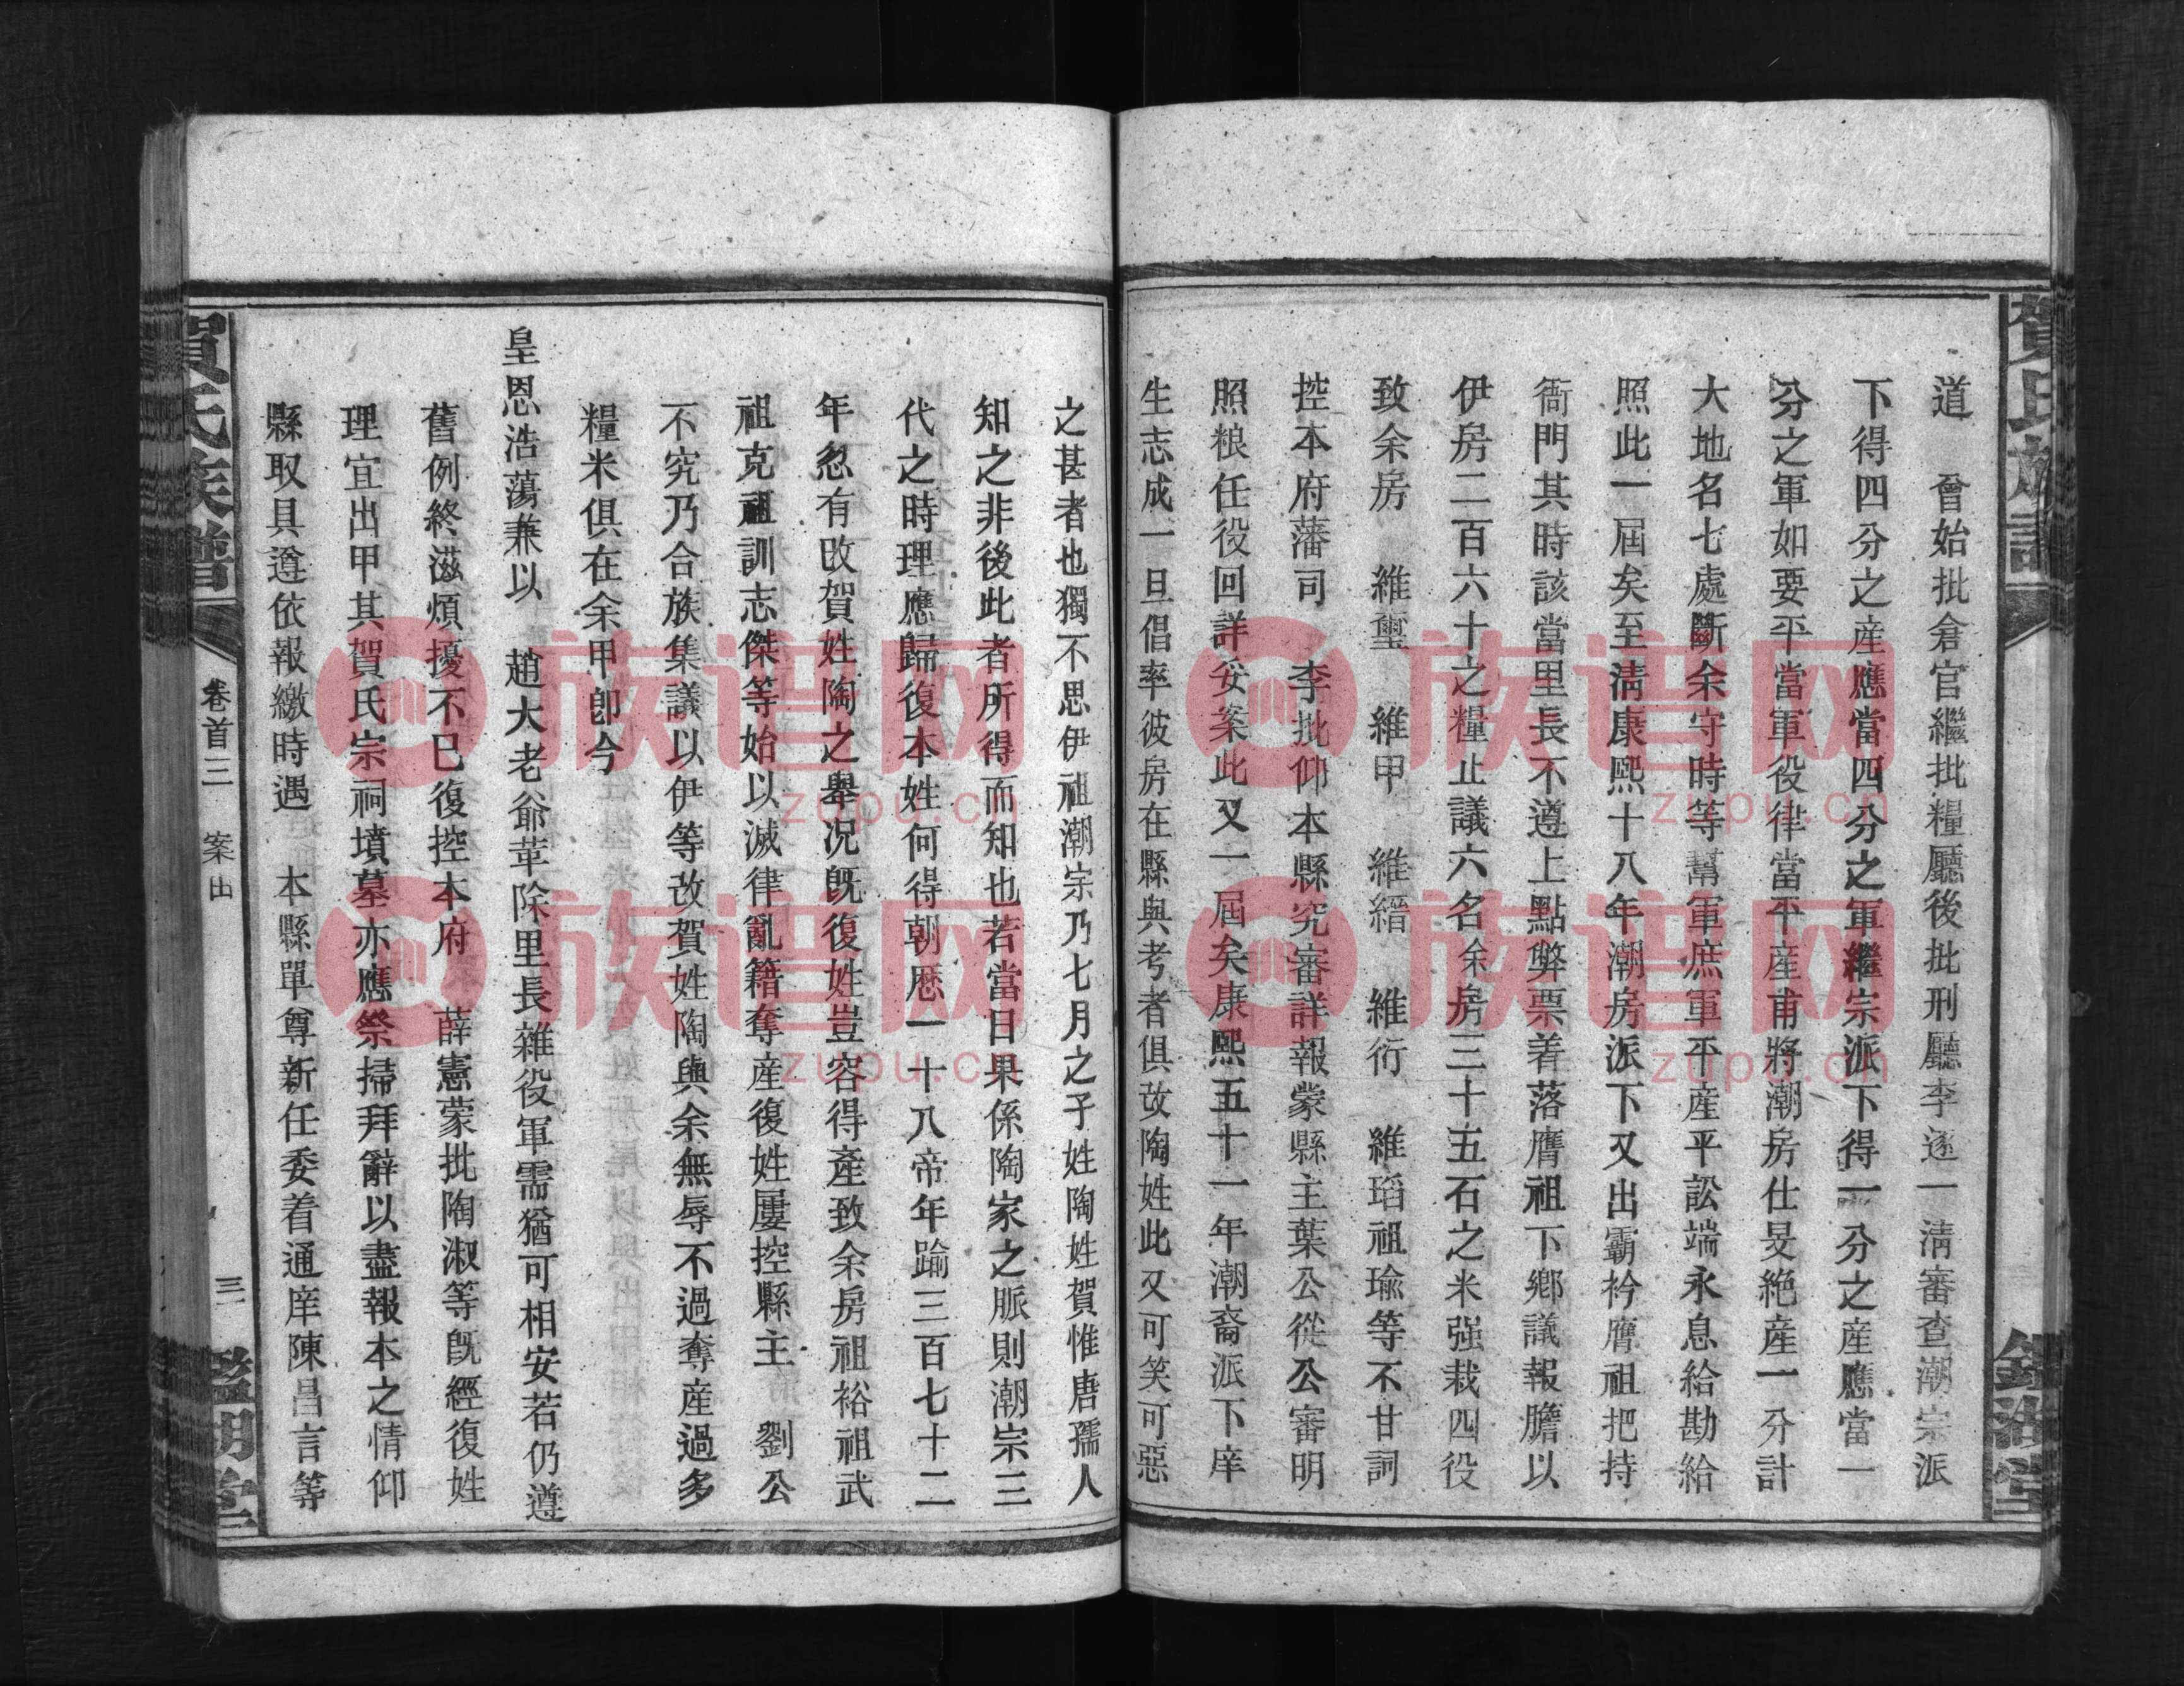 賀氏族譜
鑑湖堂
道　曾始批倉官繼批糧廳後批刑廳李逐一清審查潮宗派
下得四分之産應當四分之軍繼宗派下得一分之産應當一
分之軍如要平當軍役律當平産甫將潮房仕旻絶産一分計
大地名七處斷余守時等幫軍庶軍平産平訟端永息給勘給
照此一屆矣至清康熙十八年潮房派下又出霸衿膺祖把持
衙門其時該當里長不遵上點弊票着落膺祖下鄉議報膽以
伊房二百六十之糧止議六名余房三十五石之米强栽四役
致余房　維璽　維甲　維縉　維衍　維瑫祖瑜等不甘詞
控本府藩司　李批仰本縣究審詳報蒙縣主葉公從公審明
照粮任役回詳妥案此又一屆矣康熙五十一年潮裔派下庠
生志成一旦倡率彼房在縣與考者俱改陶姓此又可笑可惡
之甚者也獨不思伊祖潮宗乃七月之子姓陶姓賀惟唐孺人
知之非後此者所得而知也若當日果係陶家之脈則潮宗三
代之時理應歸復本姓何得朝歷一十八帝年踰三百七十二
年忽有改賀姓陶之舉况既復姓豈容得產致余房祖裕祖武
祖克祖訓志傑等始以滅律亂籍奪産復姓屢控縣主　劉公
不究乃合族集議以伊等改賀姓陶與余無辱不過奪産過多
糧米俱在余甲卽今
皇恩浩蕩兼以　趙大老爺革除里長雜役軍需猶可相安若仍遵
舊例終滋煩擾不已復控本府　薛憲蒙批陶淑等既經復姓
理宜出甲其賀氏宗祠墳墓亦應祭掃拜辭以盡報本之情仰
縣取具遵依報繳時遇　本縣單尊新任委着通庠陳昌言等
賀氏族譜
卷首三
案由
三
鑑湖堂
族谱网
zupu.cn
族谱网
zupu.cn
族谱网
zupu.cn
族谱网
zupu.cn